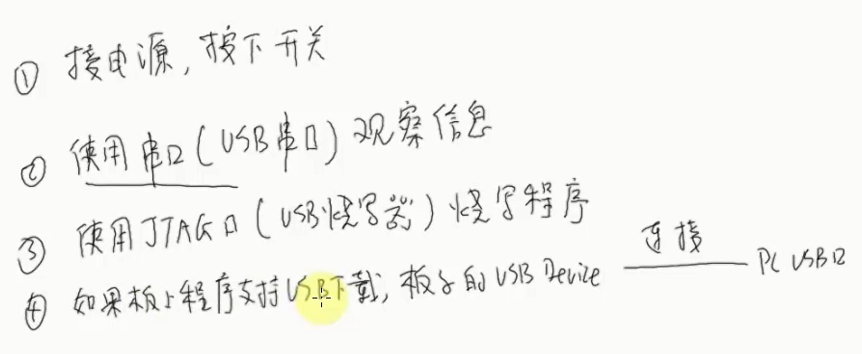 ① 接电源, 按下开关
② 使用串口(USB串口)观察信息
③ 使用JTAG口(USB烧写器)烧写程序
④ 如果板上程序支持USB下载, 板子的USB Device 连接 PC USB口